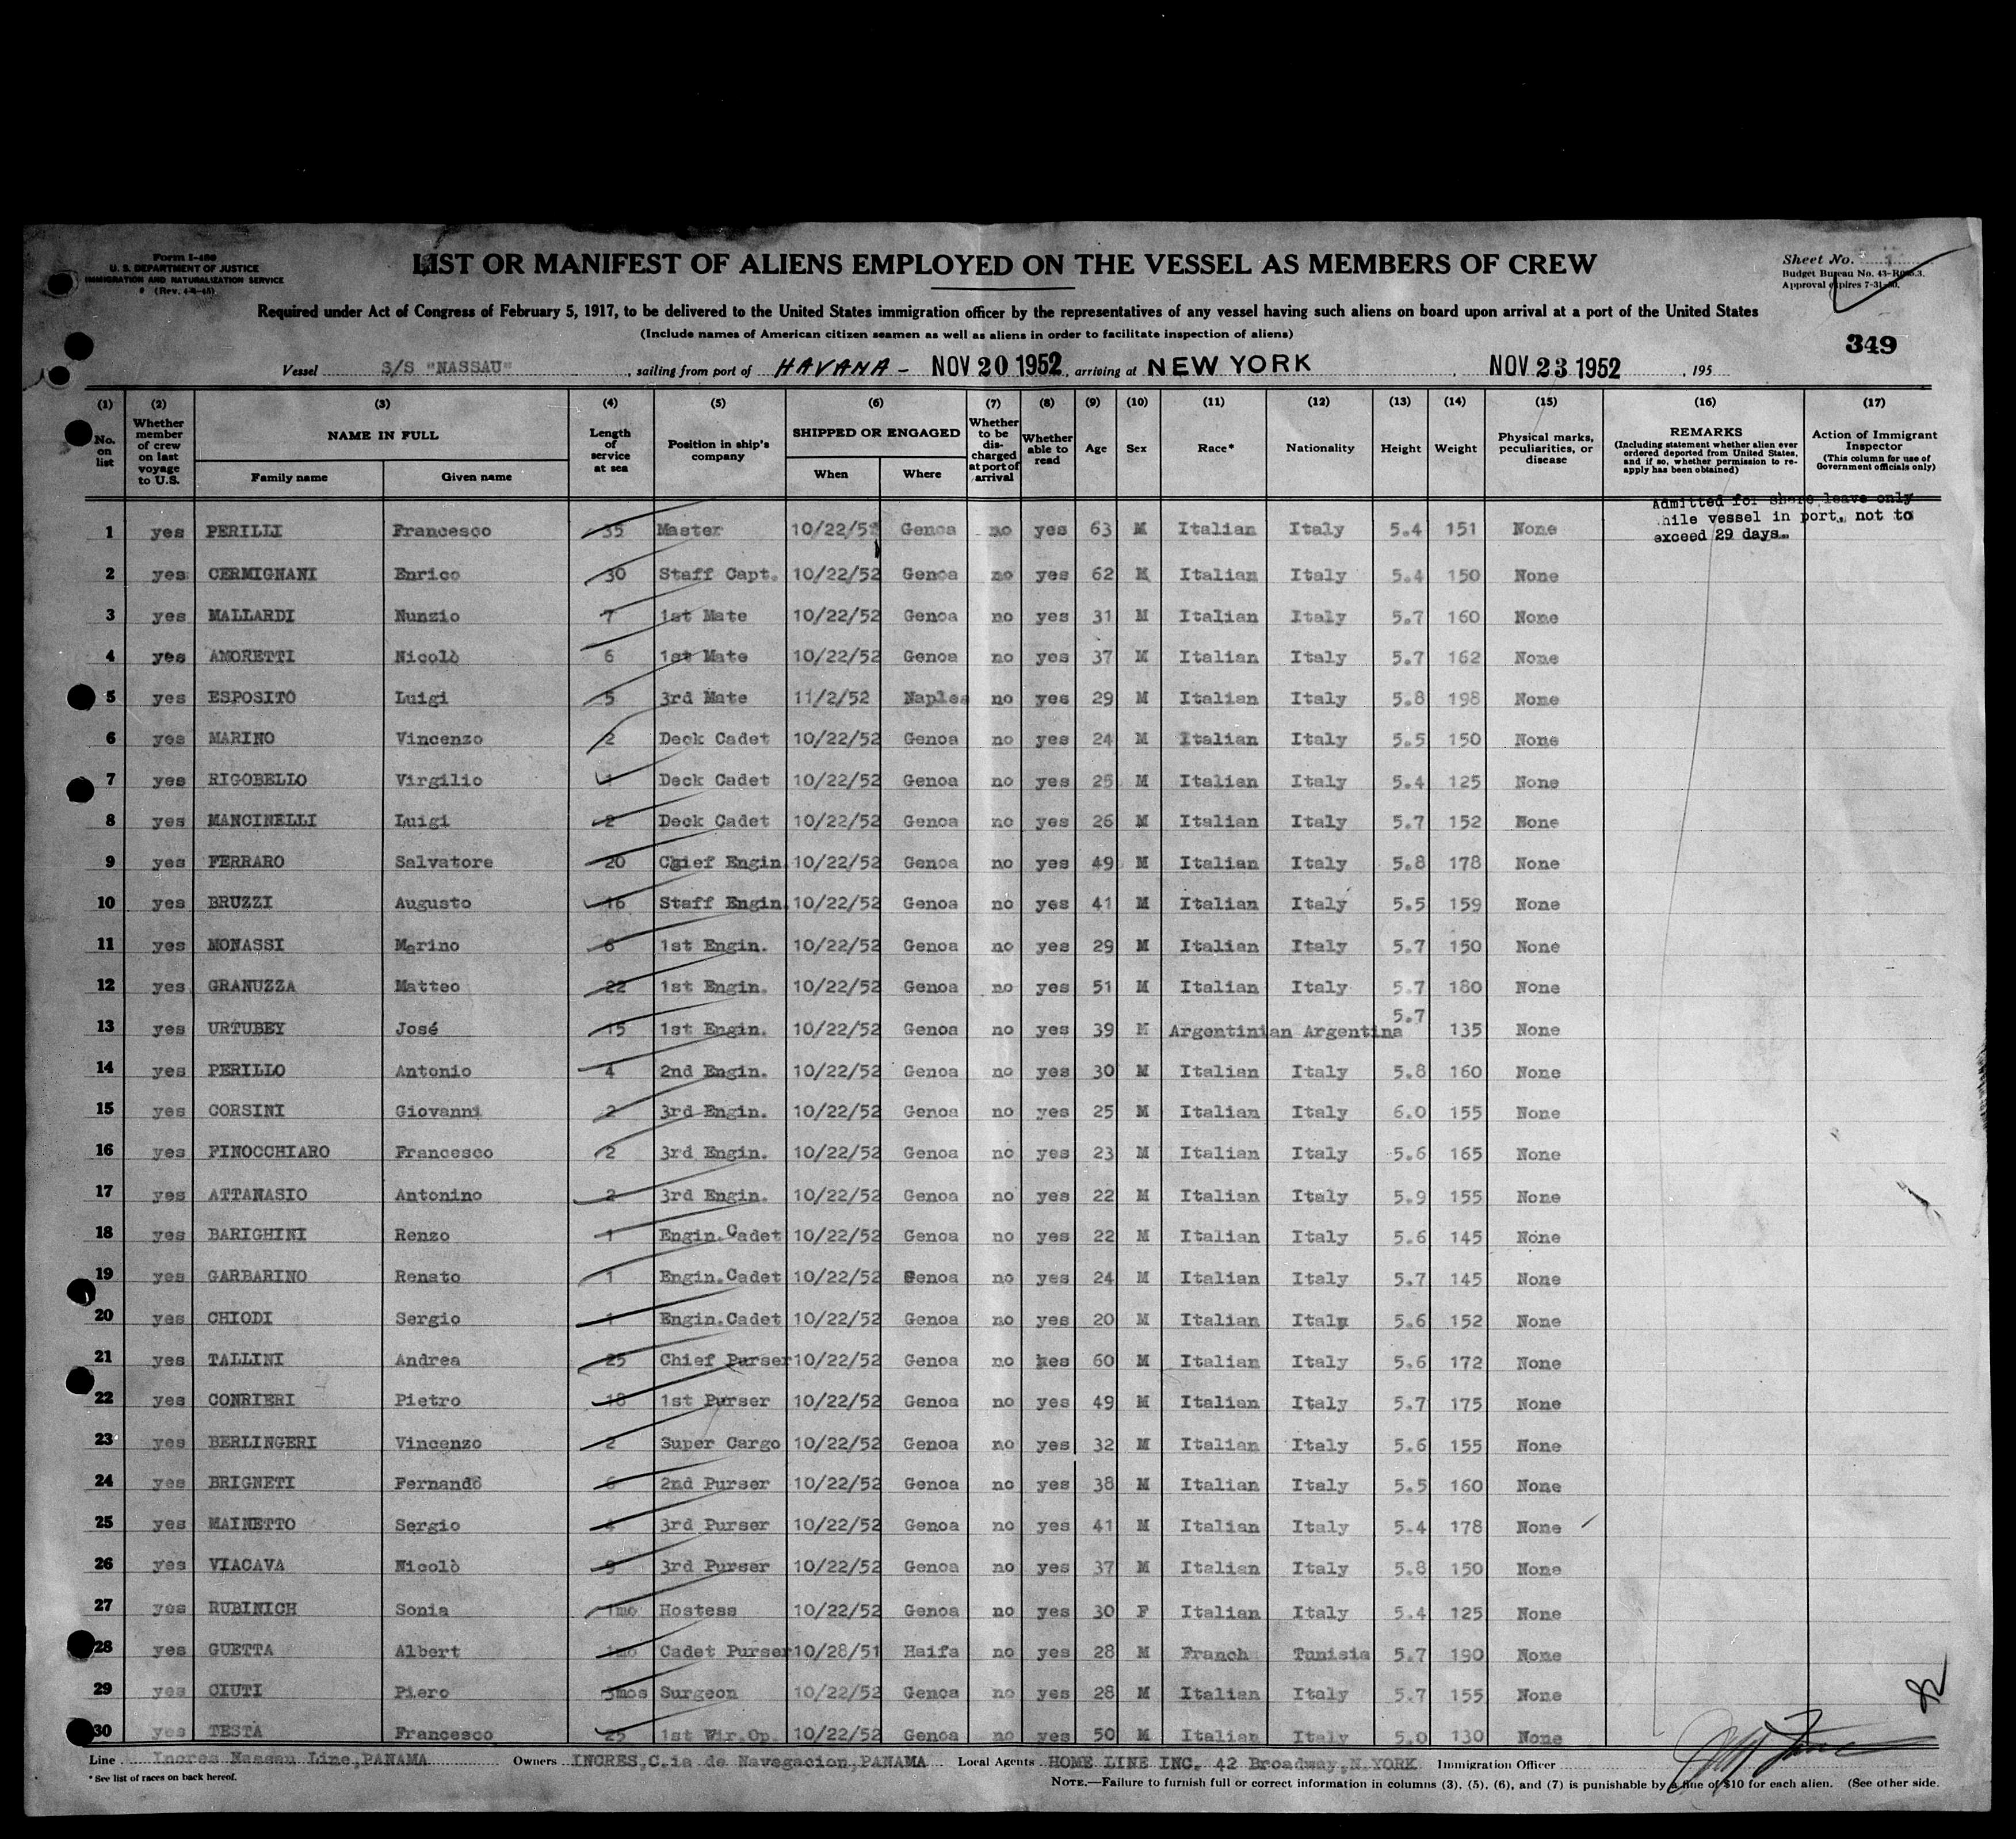 Form I-480
U. S. DEPARTMENT OF JUSTICE
IMMIGRATION AND NATURALIZATION SERVICE
(Rev. 4-4-45)
LIST OR MANIFEST OF ALIENS EMPLOYED ON THE VESSEL AS MEMBERS OF CREW
Sheet No. 1
Budget Bureau No. 43-R065.3.
Approval expires 7-31-50.
Required under Act of Congress of February 5, 1917, to be delivered to the United States immigration officer by the representatives of any vessel having such aliens on board upon arrival at a port of the United States
(Include names of American citizen seamen as well as aliens in order to facilitate inspection of aliens)
349
Vessel S/S "NASSAU", sailing from port of HAVANA - NOV 20 1952, arriving at NEW YORK, NOV 23 1952, 195
(1) (2) (3) (4) (5) (6) (7) (8) (9) (10) (11) (12) (13) (14) (15) (16) (17)
No. on list
Whether member of crew on last voyage to U.S.
NAME IN FULL
Family name Given name
Length of service at sea
Position in ship's company
SHIPPED OR ENGAGED
When Where
Whether to be discharged at port of arrival
Whether able to read
Age
Sex
Race*
Nationality
Height
Weight
Physical marks, peculiarities, or disease
REMARKS
(Including statement whether alien ever ordered deported from United States, and if so, whether permission to reapply has been obtained)
Action of Immigrant Inspector
(This column for use of Government officials only)
Admitted for shore leave only
hile vessel in port, not to
exceed 29 days.
1 yes PERILLI Francesco 35 Master 10/22/51 Genoa no yes 63 M Italian Italy 5.4 151 None
2 yes CERMIGNANI Enrico 30 Staff Capt. 10/22/52 Genoa no yes 62 M Italian Italy 5.4 150 None
3 yes MALLARDI Nunzio 7 1st Mate 10/22/52 Genoa no yes 31 M Italian Italy 5.7 160 None
4 yes AMORETTI Nicolò 6 1st Mate 10/22/52 Genoa no yes 37 M Italian Italy 5.7 162 None
5 yes ESPOSITO Luigi 5 3rd Mate 11/2/52 Naples no yes 29 M Italian Italy 5.8 198 None
6 yes MARINO Vincenzo 2 Deck Cadet 10/22/52 Genoa no yes 24 M Italian Italy 5.5 150 None
7 yes RIGOBELLO Virgilio 1 Deck Cadet 10/22/52 Genoa no yes 25 M Italian Italy 5.4 125 None
8 yes MANCINELLI Luigi 2 Deck Cadet 10/22/52 Genoa no yes 26 M Italian Italy 5.7 152 None
9 yes FERRARO Salvatore 20 Chief Engin. 10/22/52 Genoa no yes 49 M Italian Italy 5.8 178 None
10 yes BRUZZI Augusto 16 Staff Engin. 10/22/52 Genoa no yes 41 M Italian Italy 5.5 159 None
11 yes MONASSI Marino 6 1st Engin. 10/22/52 Genoa no yes 29 M Italian Italy 5.7 150 None
12 yes GRANUZZA Matteo 22 1st Engin. 10/22/52 Genoa no yes 51 M Italian Italy 5.7 180 None
13 yes URTUBEY José 15 1st Engin. 10/22/52 Genoa no yes 39 M Argentinian Argentina 5.7 135 None
14 yes PERILLO Antonio 4 2nd Engin. 10/22/52 Genoa no yes 30 M Italian Italy 5.8 160 None
15 yes CORSINI Giovanni 2 3rd Engin. 10/22/52 Genoa no yes 25 M Italian Italy 6.0 155 None
16 yes FINOCCHIARO Francesco 2 3rd Engin. 10/22/52 Genoa no yes 23 M Italian Italy 5.6 165 None
17 yes ATTANASIO Antonino 2 3rd Engin. 10/22/52 Genoa no yes 22 M Italian Italy 5.9 155 None
18 yes BARIGHINI Renzo 1 Engin.Cadet 10/22/52 Genoa no yes 22 M Italian Italy 5.6 145 None
19 yes GARBARINO Renato 1 Engin.Cadet 10/22/52 Genoa no yes 24 M Italian Italy 5.7 145 None
20 yes CHIODI Sergio 1 Engin.Cadet 10/22/52 Genoa no yes 20 M Italian Italy 5.6 152 None
21 yes TALLINI Andrea 25 Chief Purser 10/22/52 Genoa no yes 60 M Italian Italy 5.6 172 None
22 yes CONRIERI Pietro 18 1st Purser 10/22/52 Genoa no yes 49 M Italian Italy 5.7 175 None
23 yes BERLINGERI Vincenzo 2 Super Cargo 10/22/52 Genoa no yes 32 M Italian Italy 5.6 155 None
24 yes BRIGNETI Fernando 6 2nd Purser 10/22/52 Genoa no yes 38 M Italian Italy 5.5 160 None
25 yes MAINETTO Sergio 4 3rd Purser 10/22/52 Genoa no yes 41 M Italian Italy 5.4 178 None
26 yes VIACAVA Nicolò 9 3rd Purser 10/22/52 Genoa no yes 37 M Italian Italy 5.8 150 None
27 yes RUBINICH Sonia 1mo Hostess 10/22/52 Genoa no yes 30 F Italian Italy 5.4 125 None
28 yes GUETTA Albert 1mo Cadet Purser 10/28/51 Haifa no yes 28 M Franch Tunisia 5.7 190 None
29 yes CIUTI Piero 3mos Surgeon 10/22/52 Genoa no yes 28 M Italian Italy 5.7 155 None
30 yes TESTA Francesco 25 1st Wir.Op. 10/22/52 Genoa no yes 50 M Italian Italy 5.0 130 None
Line Incres Nassau Line,PANAMA Owners INCRES,C.ia de Navegacion,PANAMA Local Agents HOME LINE INC. 42 Broadway,N.YORK Immigration Officer
* See list of races on back hereof.
NOTE.—Failure to furnish full or correct information in columns (3), (5), (6), and (7) is punishable by a fine of $10 for each alien. (See other side.